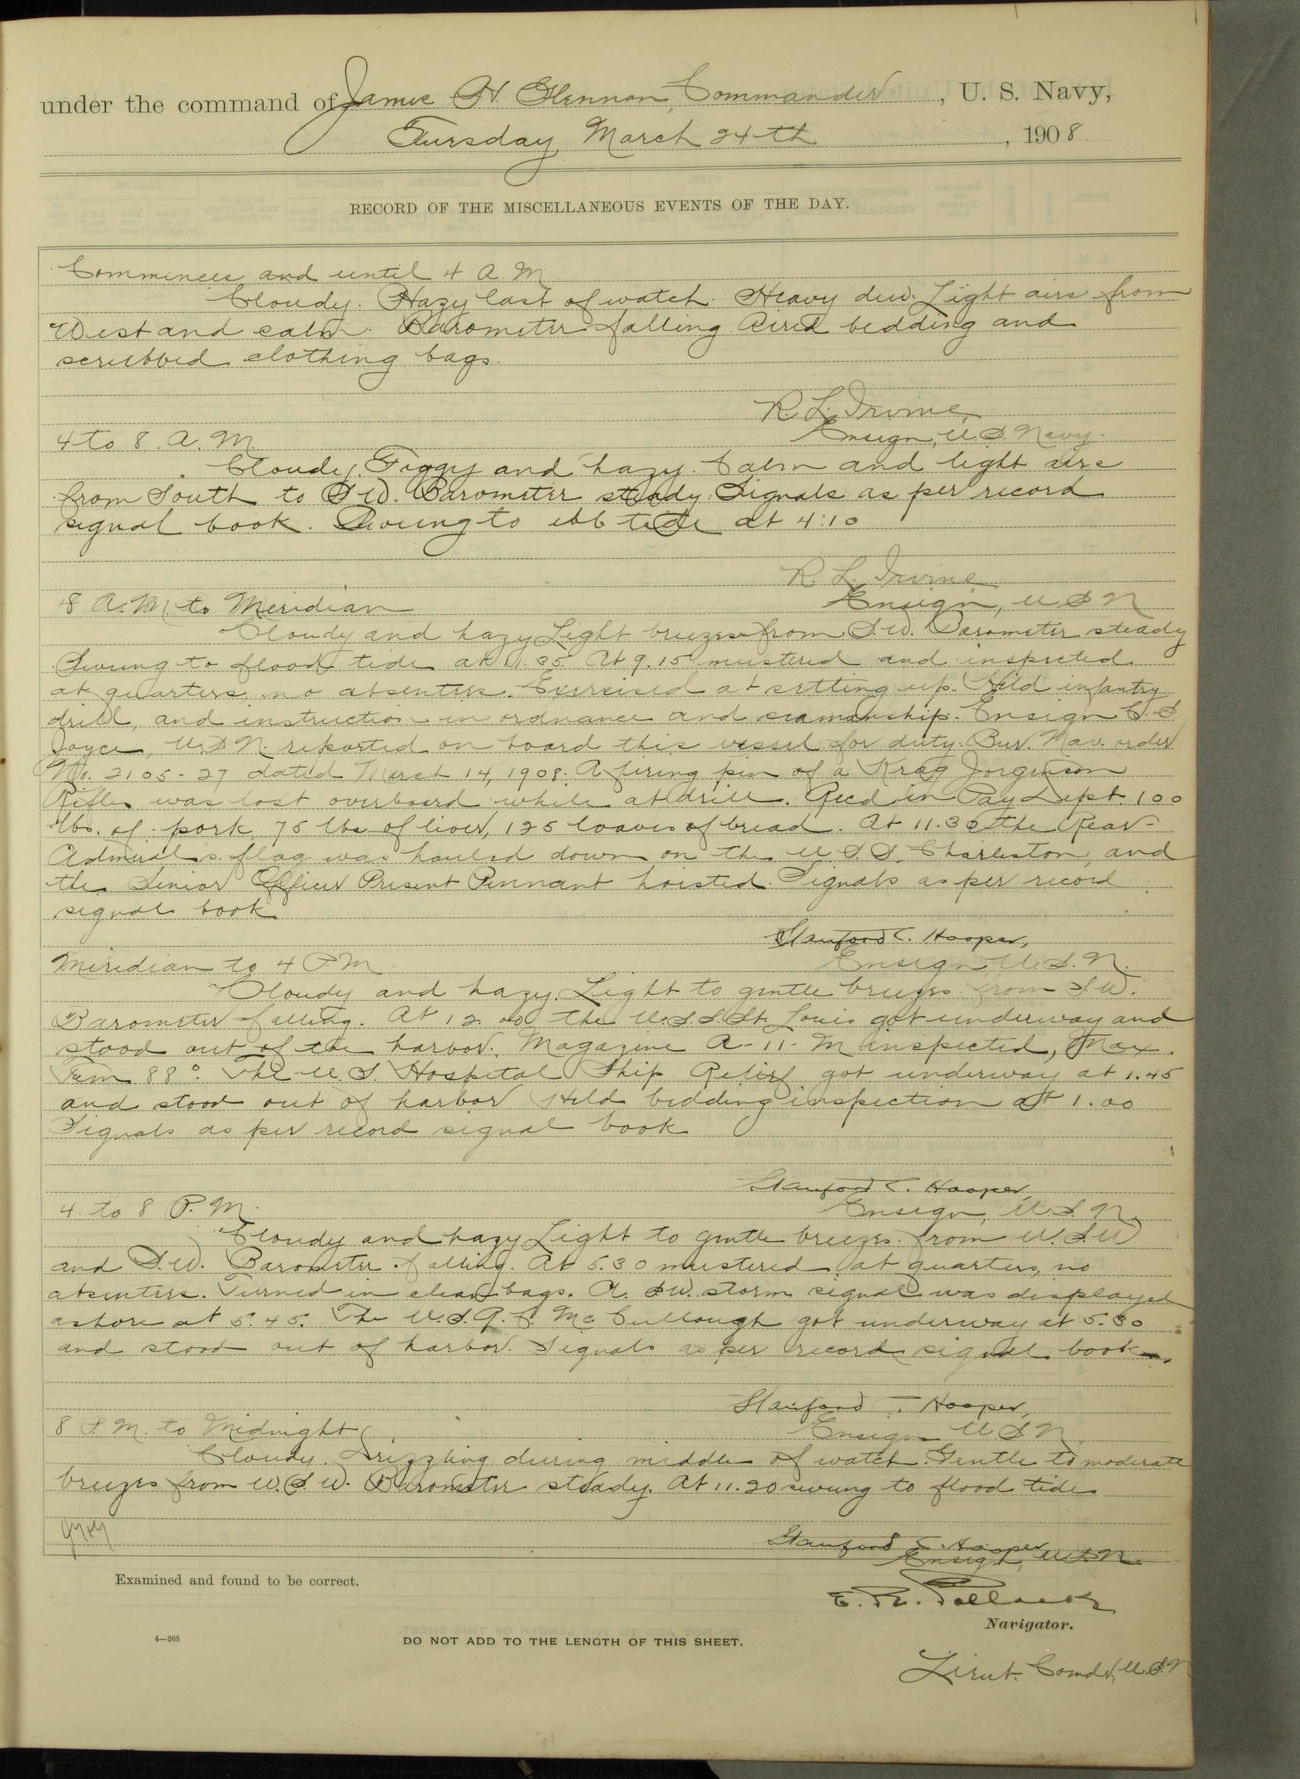 under the command of James H. Glennon, Commander, U. S. Navy,
Tuesday, March 24th, 1908
RECORD OF THE MISCELLANEOUS EVENTS OF THE DAY.
Commences and until 4 A.M.
Cloudy. Hazy last of watch. Heavy dew. Light airs from
West and calm. Barometer falling. Aired bedding and
scrubbed clothing bags.
R. L. Irvine,
Ensign, U.S. Navy.
4 to 8 A.M.
Cloudy. Foggy and hazy. Calm and light airs
from South to S.W. Barometer steady. Signals as per record
signal book. Swung to ebb tide at 4:10
R. L. Irvine
Ensign, U S N
8 A.M. to Meridian
Cloudy and hazy. Light breezes from S.W. Barometer steady
Swung to flood tide at 11.35. At 9.15 mustered and inspected
at quarters no absentees. Exercised at setting up. Held infantry
drill, and instruction in ordnance and seamanship. Ensign C. S.
Joyce, U.S.N. reported on board this vessel for duty. Bur. Nav. order
No. 2105-27 dated March 14, 1908. A firing pin of a Krag Jorgenson
Rifle was lost overboard while at drill. Recd in Pay Dept. 100
lbs. of pork, 75 lbs of liver, 125 loaves of bread. At 11.30 the Rear-
Admiral's flag was hauled down on the U.S.S. Charleston, and
the Senior Officer Present Pennant hoisted. Signals as per record
signal book
Stanford C. Hooper,
Ensign U.S.N.
Meridian to 4 P.M.
Cloudy and hazy. Light to gentle breezes from S.W.
Barometer falling. At 12.00 the U.S.S. St. Louis got underway and
stood out of the harbor. Magazine A-11-M inspected, Max.
Tem 88°. The U.S. Hospital Ship Relief got underway at 1.45
and stood out of harbor. Held bedding inspection at 1.00
Signals as per record signal book
Stanford C. Hooper,
Ensign, U.S.N.
4 to 8 P.M.
Cloudy and hazy Light to gentle breezes from W.S.W
and S.W. Barometer falling. At 5.30 mustered at quarters, no
absentees. Turned in clean bags. A S.W. storm signal was displayed
ashore at 5.45. The U.S.R.C. McCullough got underway at 5.30
and stood out of harbor. Signals as per record signal book.
Stanford C. Hooper,
Ensign U S N
8 P.M. to Midnight
Cloudy. Drizzling during middle of watch. Gentle to moderate
breezes from W.S.W. Barometer steady. At 11.20 swung to flood tide
Stanford C. Hooper
Ensign, U.S.N.
Examined and found to be correct.
E. R. Pollock
Navigator.
4—265
DO NOT ADD TO THE LENGTH OF THIS SHEET.
Lieut. Comdr, U.S.N